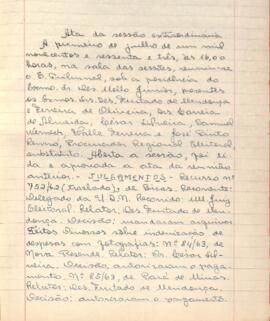 Ata da sessão extraordinária
A primeiro de julho de um mil
novecentos e sessenta e três, às 16,00
horas, na sala das sessões, reuniu-se
o E. Tribunal, sob a presidencia do
Exmo. Sr. Des. Mello Junior, presentes
os Exmos. Srs. Des. Furtado de Mendonça
e Ferreira de Oliveira, Drs.
de Almeida, Cesar Silveira,
Ferreira e José
Procurador Regional Eleitoral
substituto. Aberta a sessão, foi li-
da e aprovada a ata da reunião
anterior. - JULGAMENTOS - Recurso nº
753/63 (Traslado), de Bicas. Recorrente:
Delegado da U.D.N. Recorrido: MM. Juiz
Eleitoral. Relator: Des. Furtado de Men-
donça. Decisão: mandaram arquivar
Feitos Diversos sobre indenização de
despesas com fotografias: Nº 84/63, de
Nova Resende. Relator: Dr. Cesar Sil-
veira. Decisão, autorizaram o paga-
mento. Nº 85/63, de Pará de Minas.
Relator: Des. Furtado de Mendonça.
Decisão: autorizaram o pagamento.